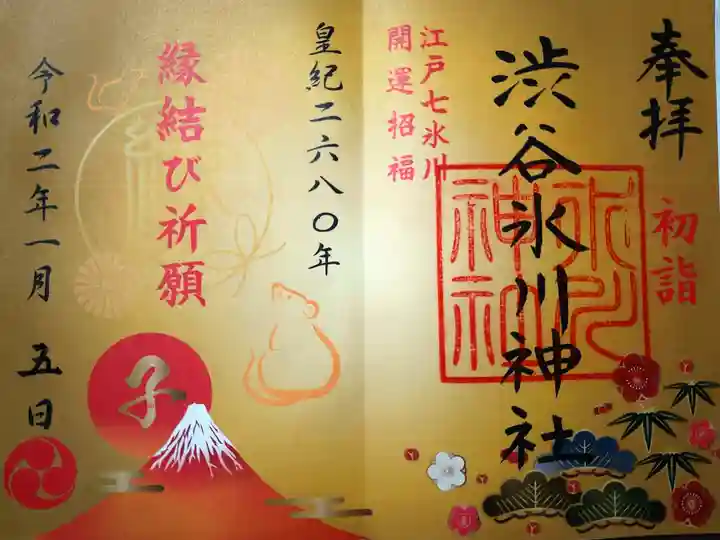 奉拝
初詣
渋谷氷川神社
氷川
神社
江戸七氷川
開運招福
皇紀二六八〇年
縁結び祈願
福
子
令和二年一月 五日